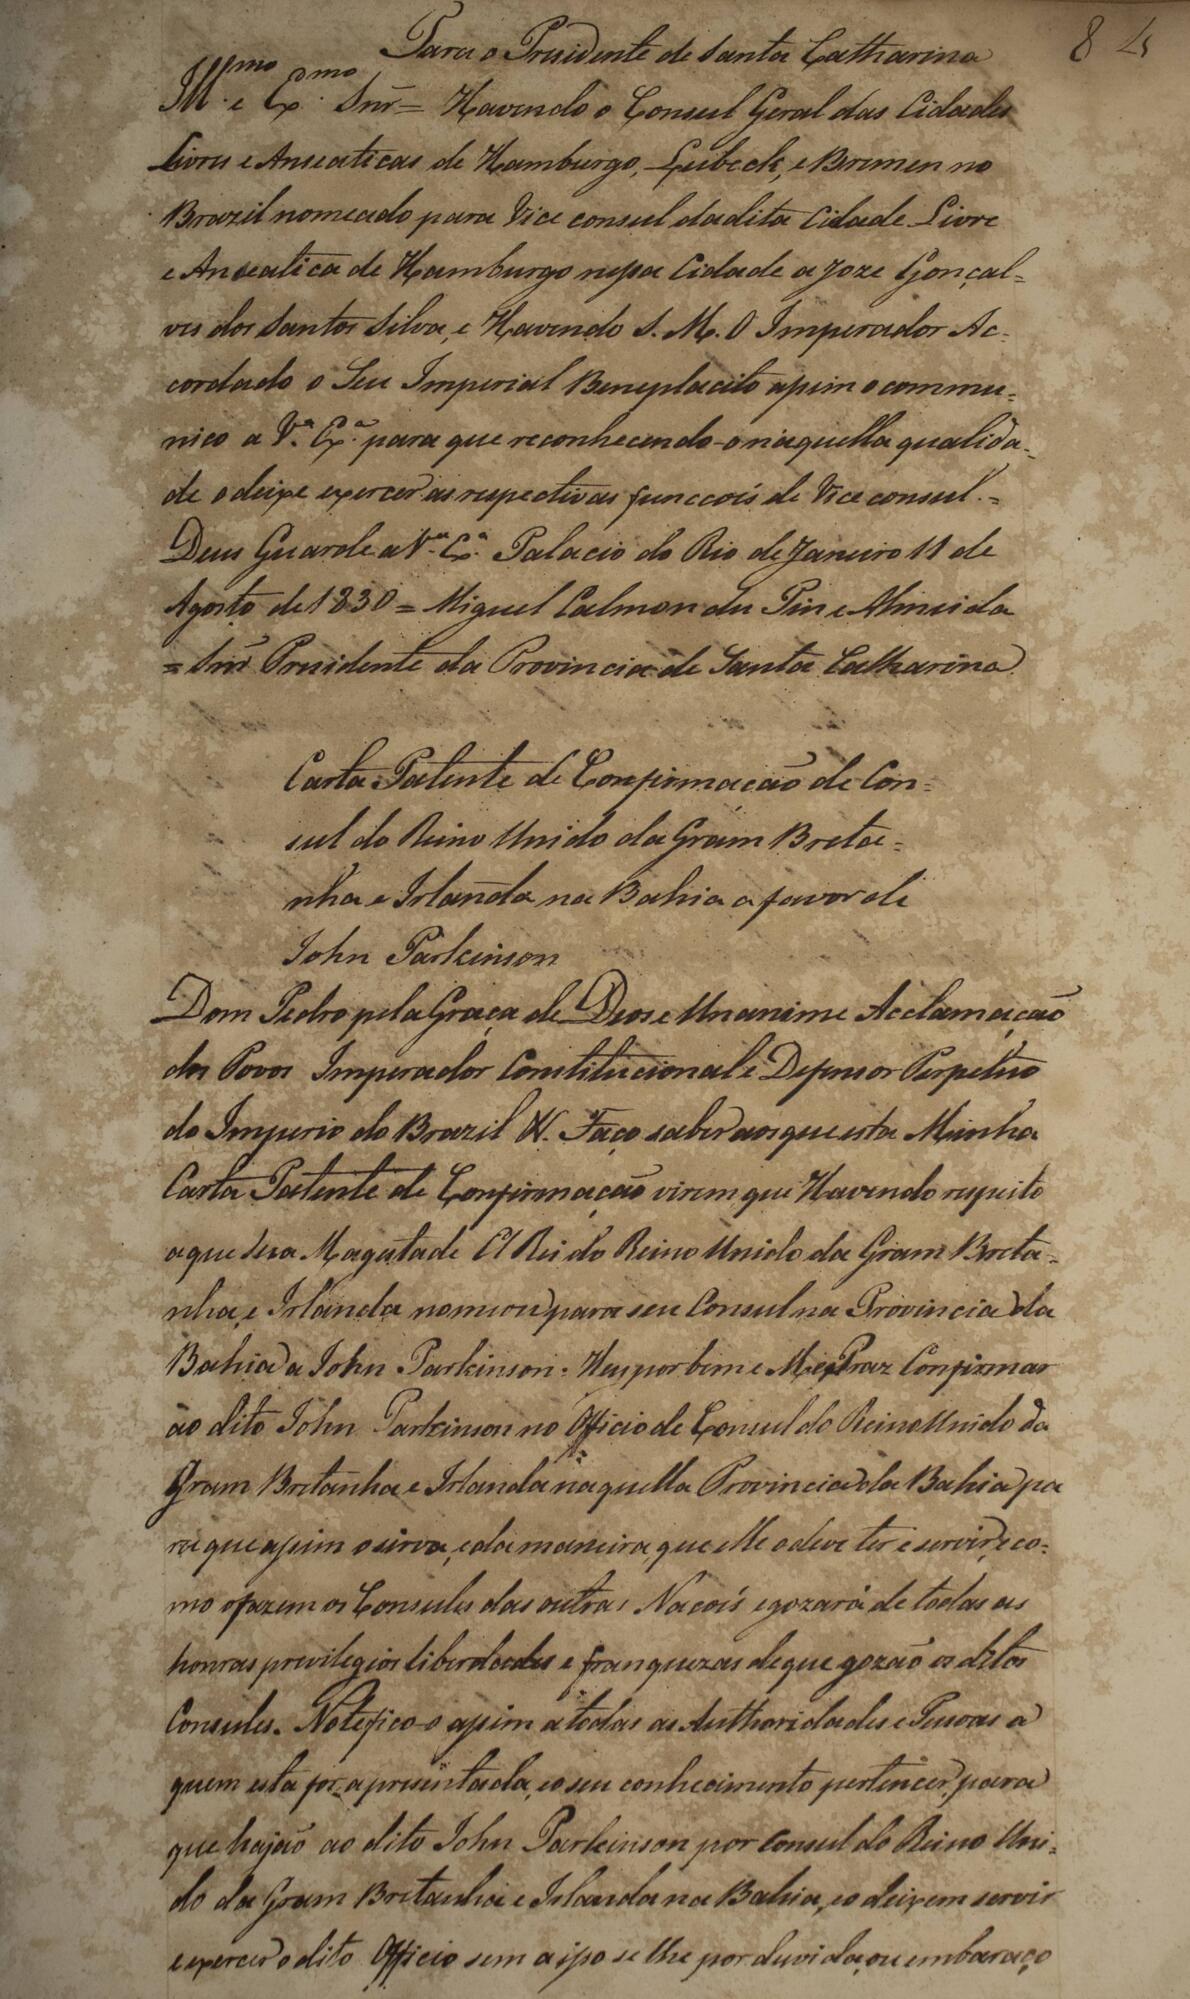 84
Para o Presidente de Santa Catharina
Illmo. e Exmo. Snr = Havendo o Consul Geral das Cidades
Livres e Anseaticas de Hamburgo, Lubeck, e Bremen no
Brazil nomeado para Vice consul da dita Cidade Livre
e Anseatica de Hamburgo nessa Cidade a Joze Gonçal=
ves dos Santos Silva, e Havendo S. M. O Imperador Ac-
cordado o Seu Imperial Beneplacito assim o commu=
nico a Va. Exa. para que reconhecendo-o naquella qualida-
de o deixe exercer as respectivas funccoís de Vice consul. =
Deus Guarde a Va. Exa. Palacio do Rio de Janeiro 11 de
Agosto de 1830 = Miguel Calmon du Pin e Almeida
= Snr Presidente da Provincia de Santa Catharina
Carta Patente de Confirmação de Con=
sul do Reino Unido da Gram Breta=
nha e Irlanda na Bahia a favor de
John Parkinson
Dom Pedro pela Graça de Deos e Unanime Acclamação
dos Povos Imperador Constitucional e Defensor Perpetuo
do Imperio do Brazil &. Faço saber aos que esta Minha
Carta Patente de Confirmação virem que Havendo respeito
a que Sua Magestade El Rei do Reino Unido da Gram Breta-
nha, e Irlanda nomeou para seu Consul na Provincia da
Bahia a John Parkinson: Hey por bem e Me Praz Confirmar
ao dito John Parkinson no Officio de Consul do Reino Unido da
Gram Bretanha e Irlanda naquella Provincia da Bahia pa
ra que assim o sirva, e da maneira, que elle o deve ter e servir, e co=
mo o fazem os Consules das outras Nacoís e gozará de todas as
honras previlegios liberdades e franquezas de que gozão os ditos
Consules. Notefico-o assim a todas as Authoridades e Pessoas a
quem esta for apresentada, e o seu conhecimento pertencer, para
que hajão ao dito John Parkinson por Consul do Reino Uni=
do da Gram Bretanha e Irlanda na Bahia, e o deixem servir
e exercer o dito Officio sem a isso se lhe por duvida, ou embaraço